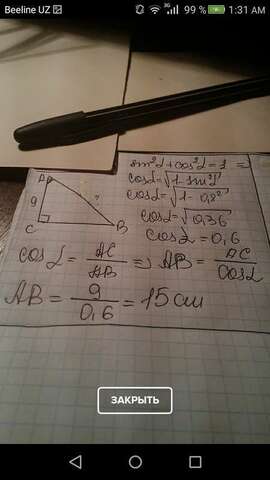 Beeline UZ 99 % 1:31 AM
sin²α+cos²α=1 =
cosα=√1-sin²α
cosα=√1-0,8²
cosα=√0,36
cosα=0,6
A
9
?
C
B
cosα = AC/AB => AB = AC/cosα
AB = 9/0,6 = 15 см
ЗАКРЫТЬ